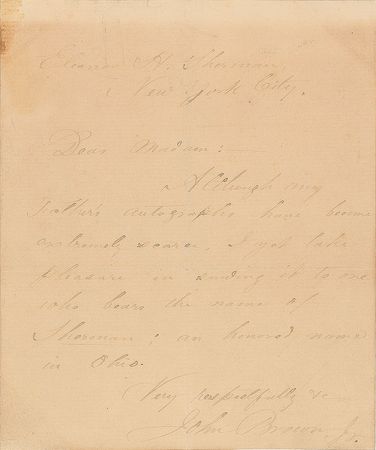 Eleanor H. Sherman,
New York City.
Dear Madam:
Although my
Father's autographs have become
extremely scarce, I yet take
pleasure in sending it to one
who bears the name of
Sherman; an honored name
in Ohio.
Very respectfully &c
John Brown Jr.